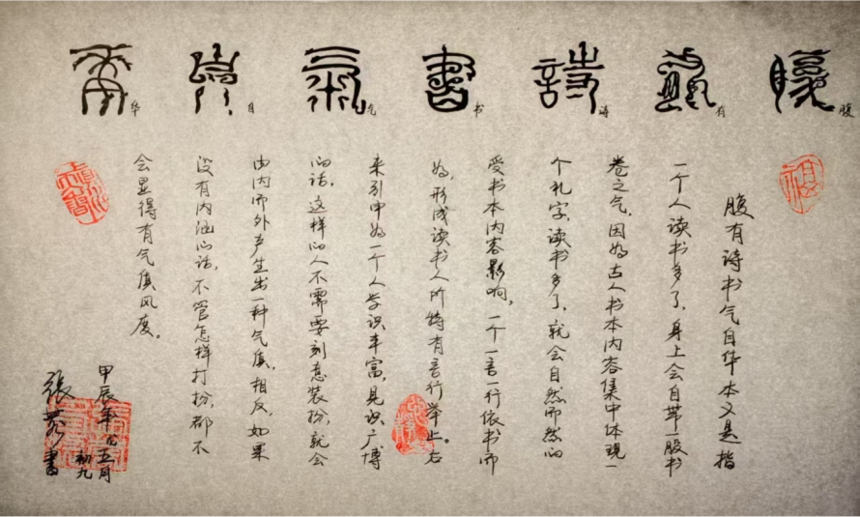 腹有詩書氣自華
腹有诗书气自华
腹有诗书气自华本义是指
一个人读书多了,身上会自带一股书
卷之气。因为古人书本内容集中体现一
个礼字,读书多了,就会自然而然的
受书本内容影响,一个一言一行依书而
为,形成读书人所特有言行举止。后
来引申为一个人学识丰富,见识广博
的话,这样的人不需要刻意装扮,就会
由内而外产生出一种气质,相反,如果
没有内涵的话,不管怎样打扮,都不
会显得有气质风度。
甲辰年五月
初九
張書